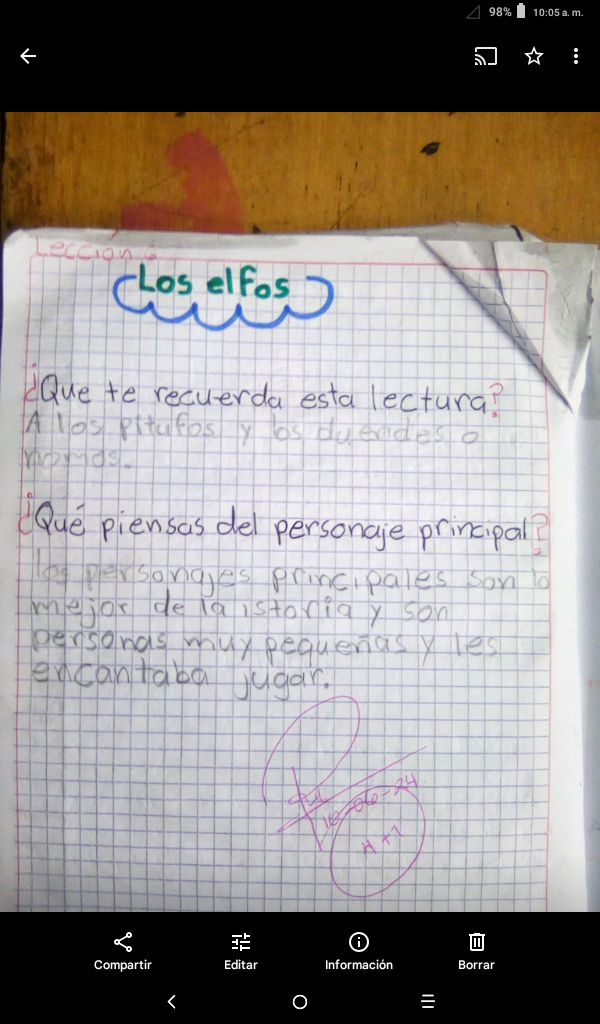 98% 10:05 a. m.
Lección 6
Los elfos
¿Que te recuerda esta lectura?
A los pitufos y los duendes o
nomos.
¿Qué piensas del personaje principal?
los personajes principales son lo
mejor de la istoria y son
personas muy pequeñas y les
encantaba jugar.
-06-24
Compartir Editar Información Borrar